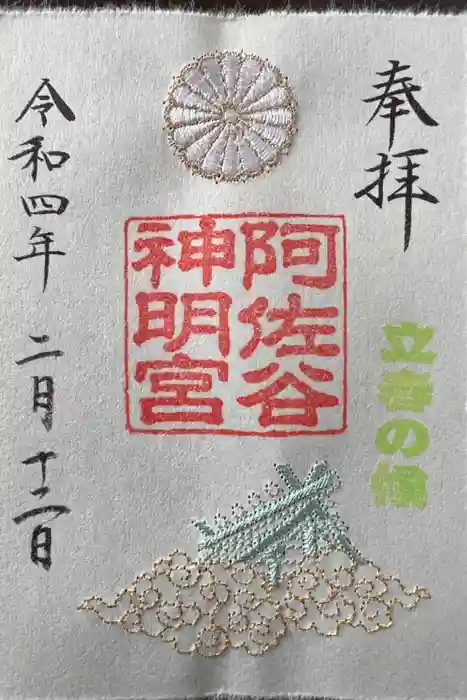 奉拝
立春の候
阿佐谷
神明宮
令和四年 二月十二日